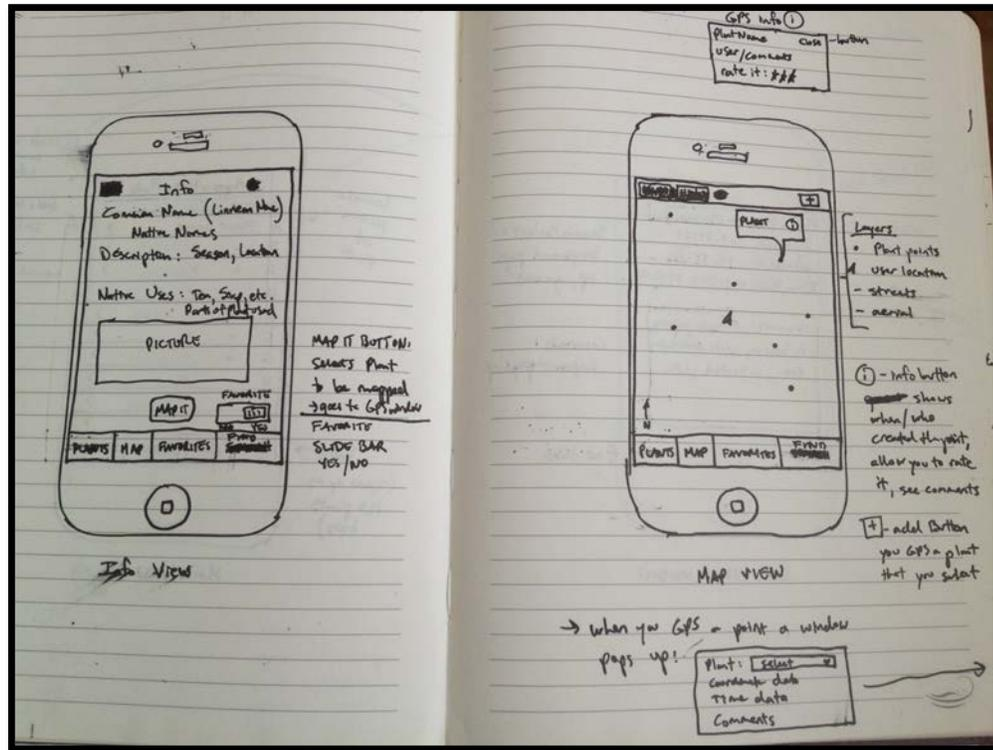 Info
Common Name (Linnean Name)
Native Names
Description: Season, Location
Native Uses: Tea, Soap, etc.
Parts of Plant used
PICTURE
MAP IT
FAVORITE
NO YES
PLANTS MAP FAVORITES FIND
Info View
MAP IT BUTTON:
Selects Plant
to be mapped
→ goes to GPS window
FAVORITE
SLIDE BAR
YES/NO
GPS Info (i)
Plant Name close - button
user/comments
rate it: ***
+
PLANT (i)
N
PLANTS MAP FAVORITES FIND
MAP VIEW
Layers
• Plant points
user location
- streets
- aerial
(i) - info button
shows
when/who
created the point,
allow you to rate
it, see comments
[+] - add Button
you GPS a plant
that you select
→ when you GPS a point a window
pops up!
Plant: Select
Coordinate data
Time data
Comments